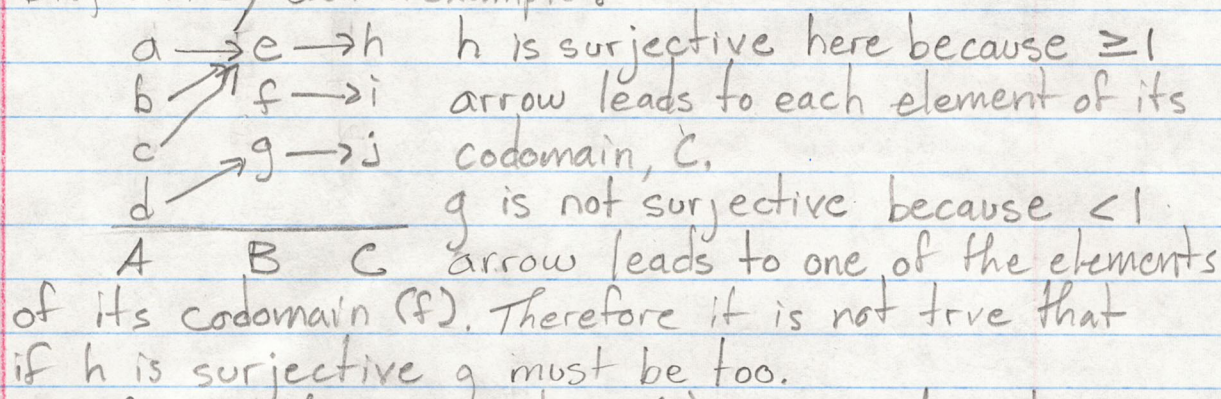 a → e → h h is surjective here because ≥1
b f → i arrow leads to each element of its
c g → j codomain, C.
d g is not surjective because <1
A B C arrow leads to one of the elements
of its codomain (f). Therefore it is not true that
if h is surjective g must be too.